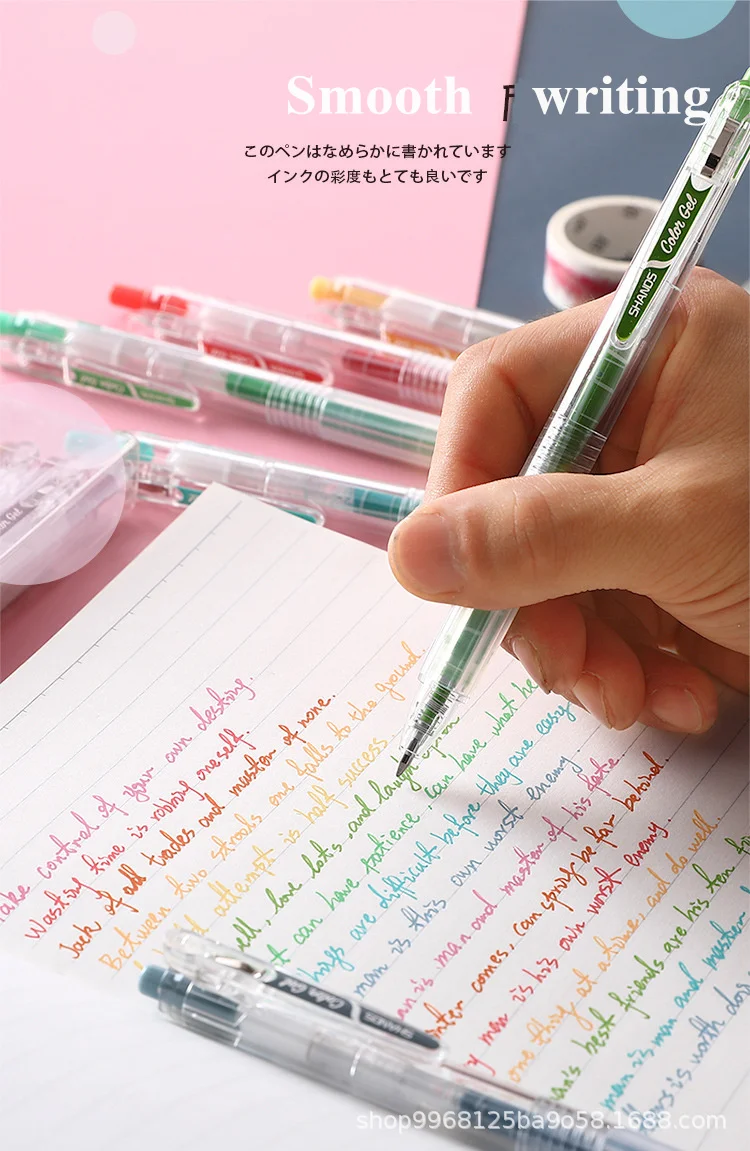 Smooth writing
このペンはなめらかに書かれています
インクの彩度もとても良いです
Color Gel
SHANDS
Color Gel SHANDS
take control of your own destiny.
Wasting time is robbing oneself.
Jack of all trades and master of none.
Between two stools one falls to the ground.
attempt is half success
ell, love lots, and laugh often
t can have patience, can have what he
things are difficult before they are easy
man is his own worst enemy.
an is man and master of his fate
inter comes, can spring be far behind.
y man is his own worst enemy.
one thing at a time, and do well.
an's best friends are his ten fin
man is man and master
is worth do
shop9968125ba9o58.1688.com